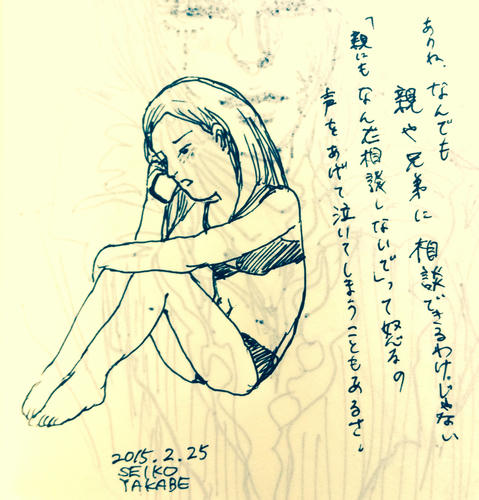 あのね、なんでも
親や兄弟に相談できるわけじゃない
「親にも相談しないで」って怒るの
声をあげて泣いてしまうこともあるさ。
2015.2.25
SEIKO
TAKABE